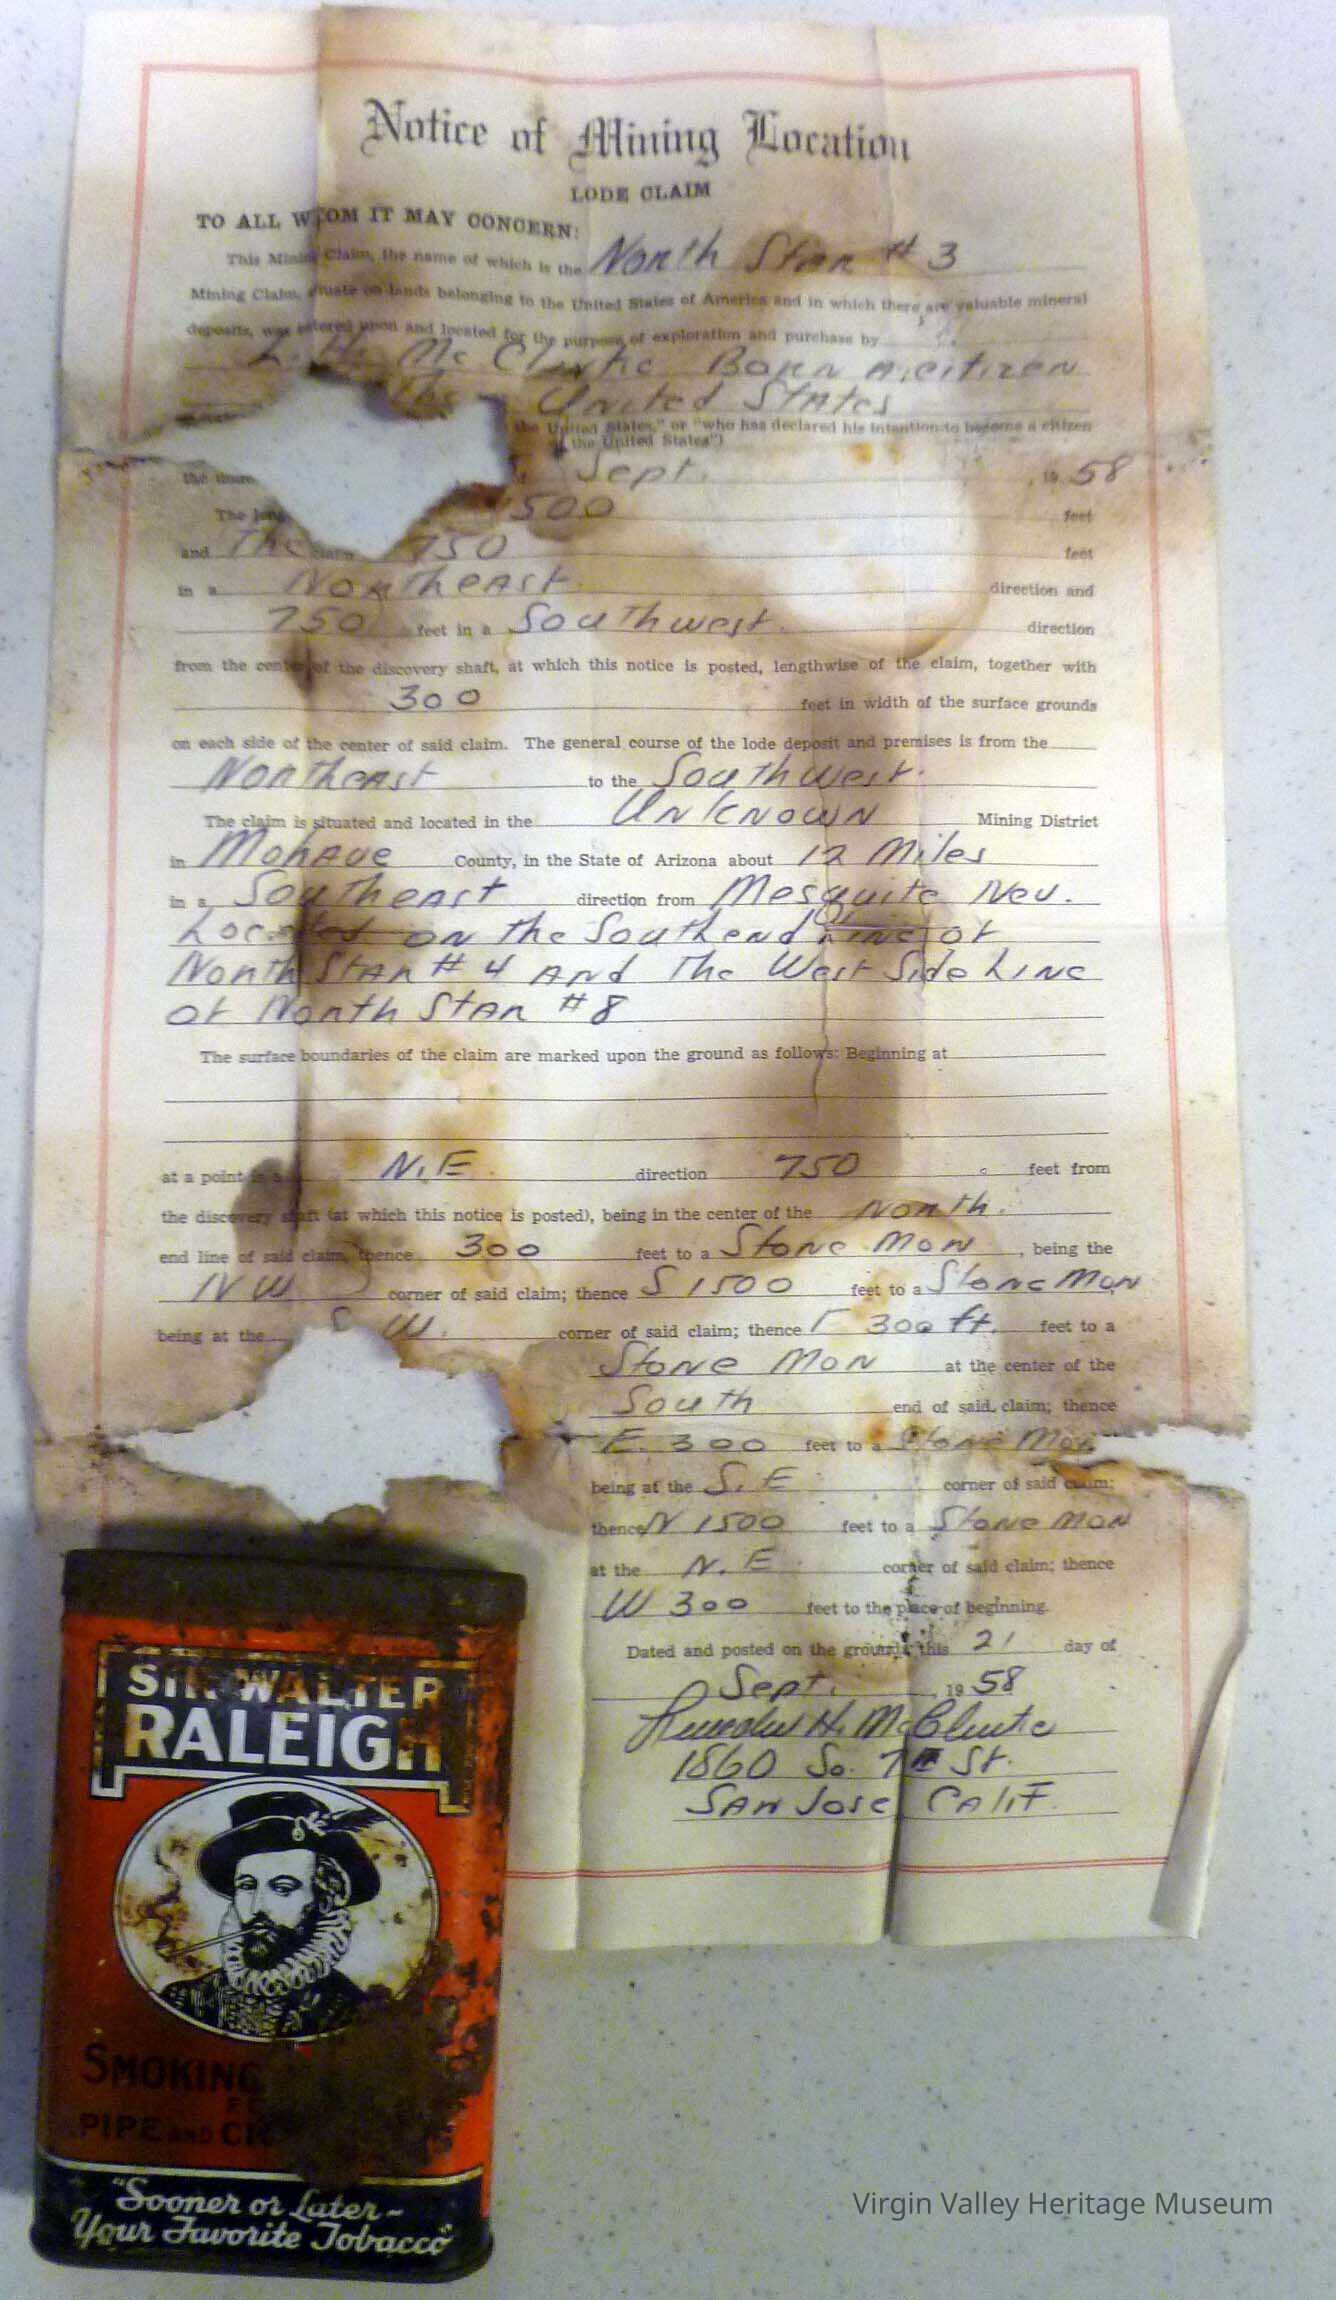 Notice of Mining Location
LODE CLAIM
TO ALL WHOM IT MAY CONCERN:
This Mining Claim, the name of which is the North Star # 3
Mining Claim, situate on lands belonging to the United States of America and in which there are valuable mineral
deposits, was entered upon and located for the purpose of exploration and purchase by
L. H. Mc Clintic Born a citizen
The United States
the United States," or "who has declared his intention to become a citizen
the United States")
the Sept. 19 58
The 500 feet
and The claim 750 feet
in a Northeast direction and
750 feet in a Southwest. direction
from the center of the discovery shaft, at which this notice is posted, lengthwise of the claim, together with
300 feet in width of the surface grounds
on each side of the center of said claim. The general course of the lode deposit and premises is from the
Northeast to the Southwest.
The claim is situated and located in the Unknown Mining District
in Mohave County, in the State of Arizona about 12 Miles
in a Southeast direction from Mesquite Nev.
Located on the South end line of
North Star # 4 and The West Side Line
of North Star # 8
The surface boundaries of the claim are marked upon the ground as follows: Beginning at
at a point in a N.E. direction 750 feet from
the discovery shaft (at which this notice is posted), being in the center of the North.
end line of said claim, thence 300 feet to a Stone Mon, being the
NW corner of said claim; thence S 1500 feet to a Stone Mon
being at the S W. corner of said claim; thence 300 ft. feet to a
Stone Mon at the center of the
South end of said claim; thence
E. 300 feet to a Stone Mon
being at the S.E corner of said claim;
thence N 1500 feet to a Stone Mon
at the N.E. corner of said claim; thence
W 300 feet to the place of beginning.
Dated and posted on the ground, this 21 day of
Sept. 19 58
H. McClintic
1860 So. 7th St.
San Jose Calif.
SIR WALTER
RALEIGH
SMOKING
PIPE AND
"Sooner or Later-
Your Favorite Tobacco"
Virgin Valley Heritage Museum